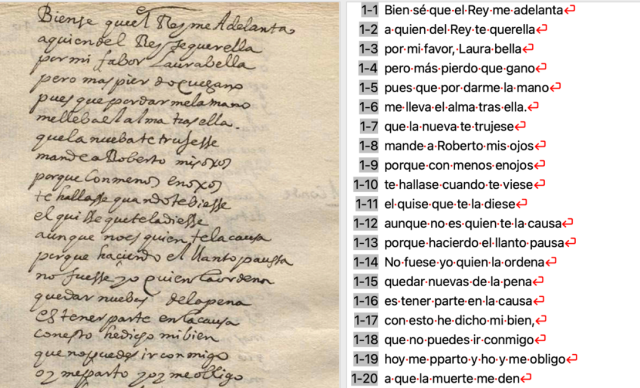 Biense que el Rey me Adelanta
aquien del Rey sequerella
por mi fabor Laurabella
pero mas pierdo que gano
pues que pordar mela mano
mellebael alma trasella.
quela nuebate trujesse
mande a Roberto mis oxos
porque Con menos enoxos
te hallasse quando te biesse
el quisse que teladiesse
aunque noes quien telacausa
porque haciendo el llanto paussa
no fuesse yo quien laordena
quedar nuebas delapena
es tener parte enlacausa
conesto hedicho mi bien
que nopuedes ir con migo
oy meparto yoy me obligo
1-1 Bien sé que el Rey me adelanta
1-2 a quien del Rey te querella
1-3 por mi favor, Laura bella
1-4 pero más pierdo que gano
1-5 pues que por darme la mano
1-6 me lleva el alma tras ella.
1-7 que la nueva te trujese
1-8 mande a Roberto mis ojos
1-9 porque con menos enojos
1-10 te hallase cuando te viese
1-11 el quise que te la diese
1-12 aunque no es quien te la causa
1-13 porque hacierdo el llanto pausa
1-14 No fuese yo quien la ordena
1-15 quedar nuevas de la pena
1-16 es tener parte en la causa
1-17 con esto he dicho mi bien,
1-18 que no puedes ir conmigo
1-19 hoy me pparto y ho y me obligo
1-20 a que la muerte me den